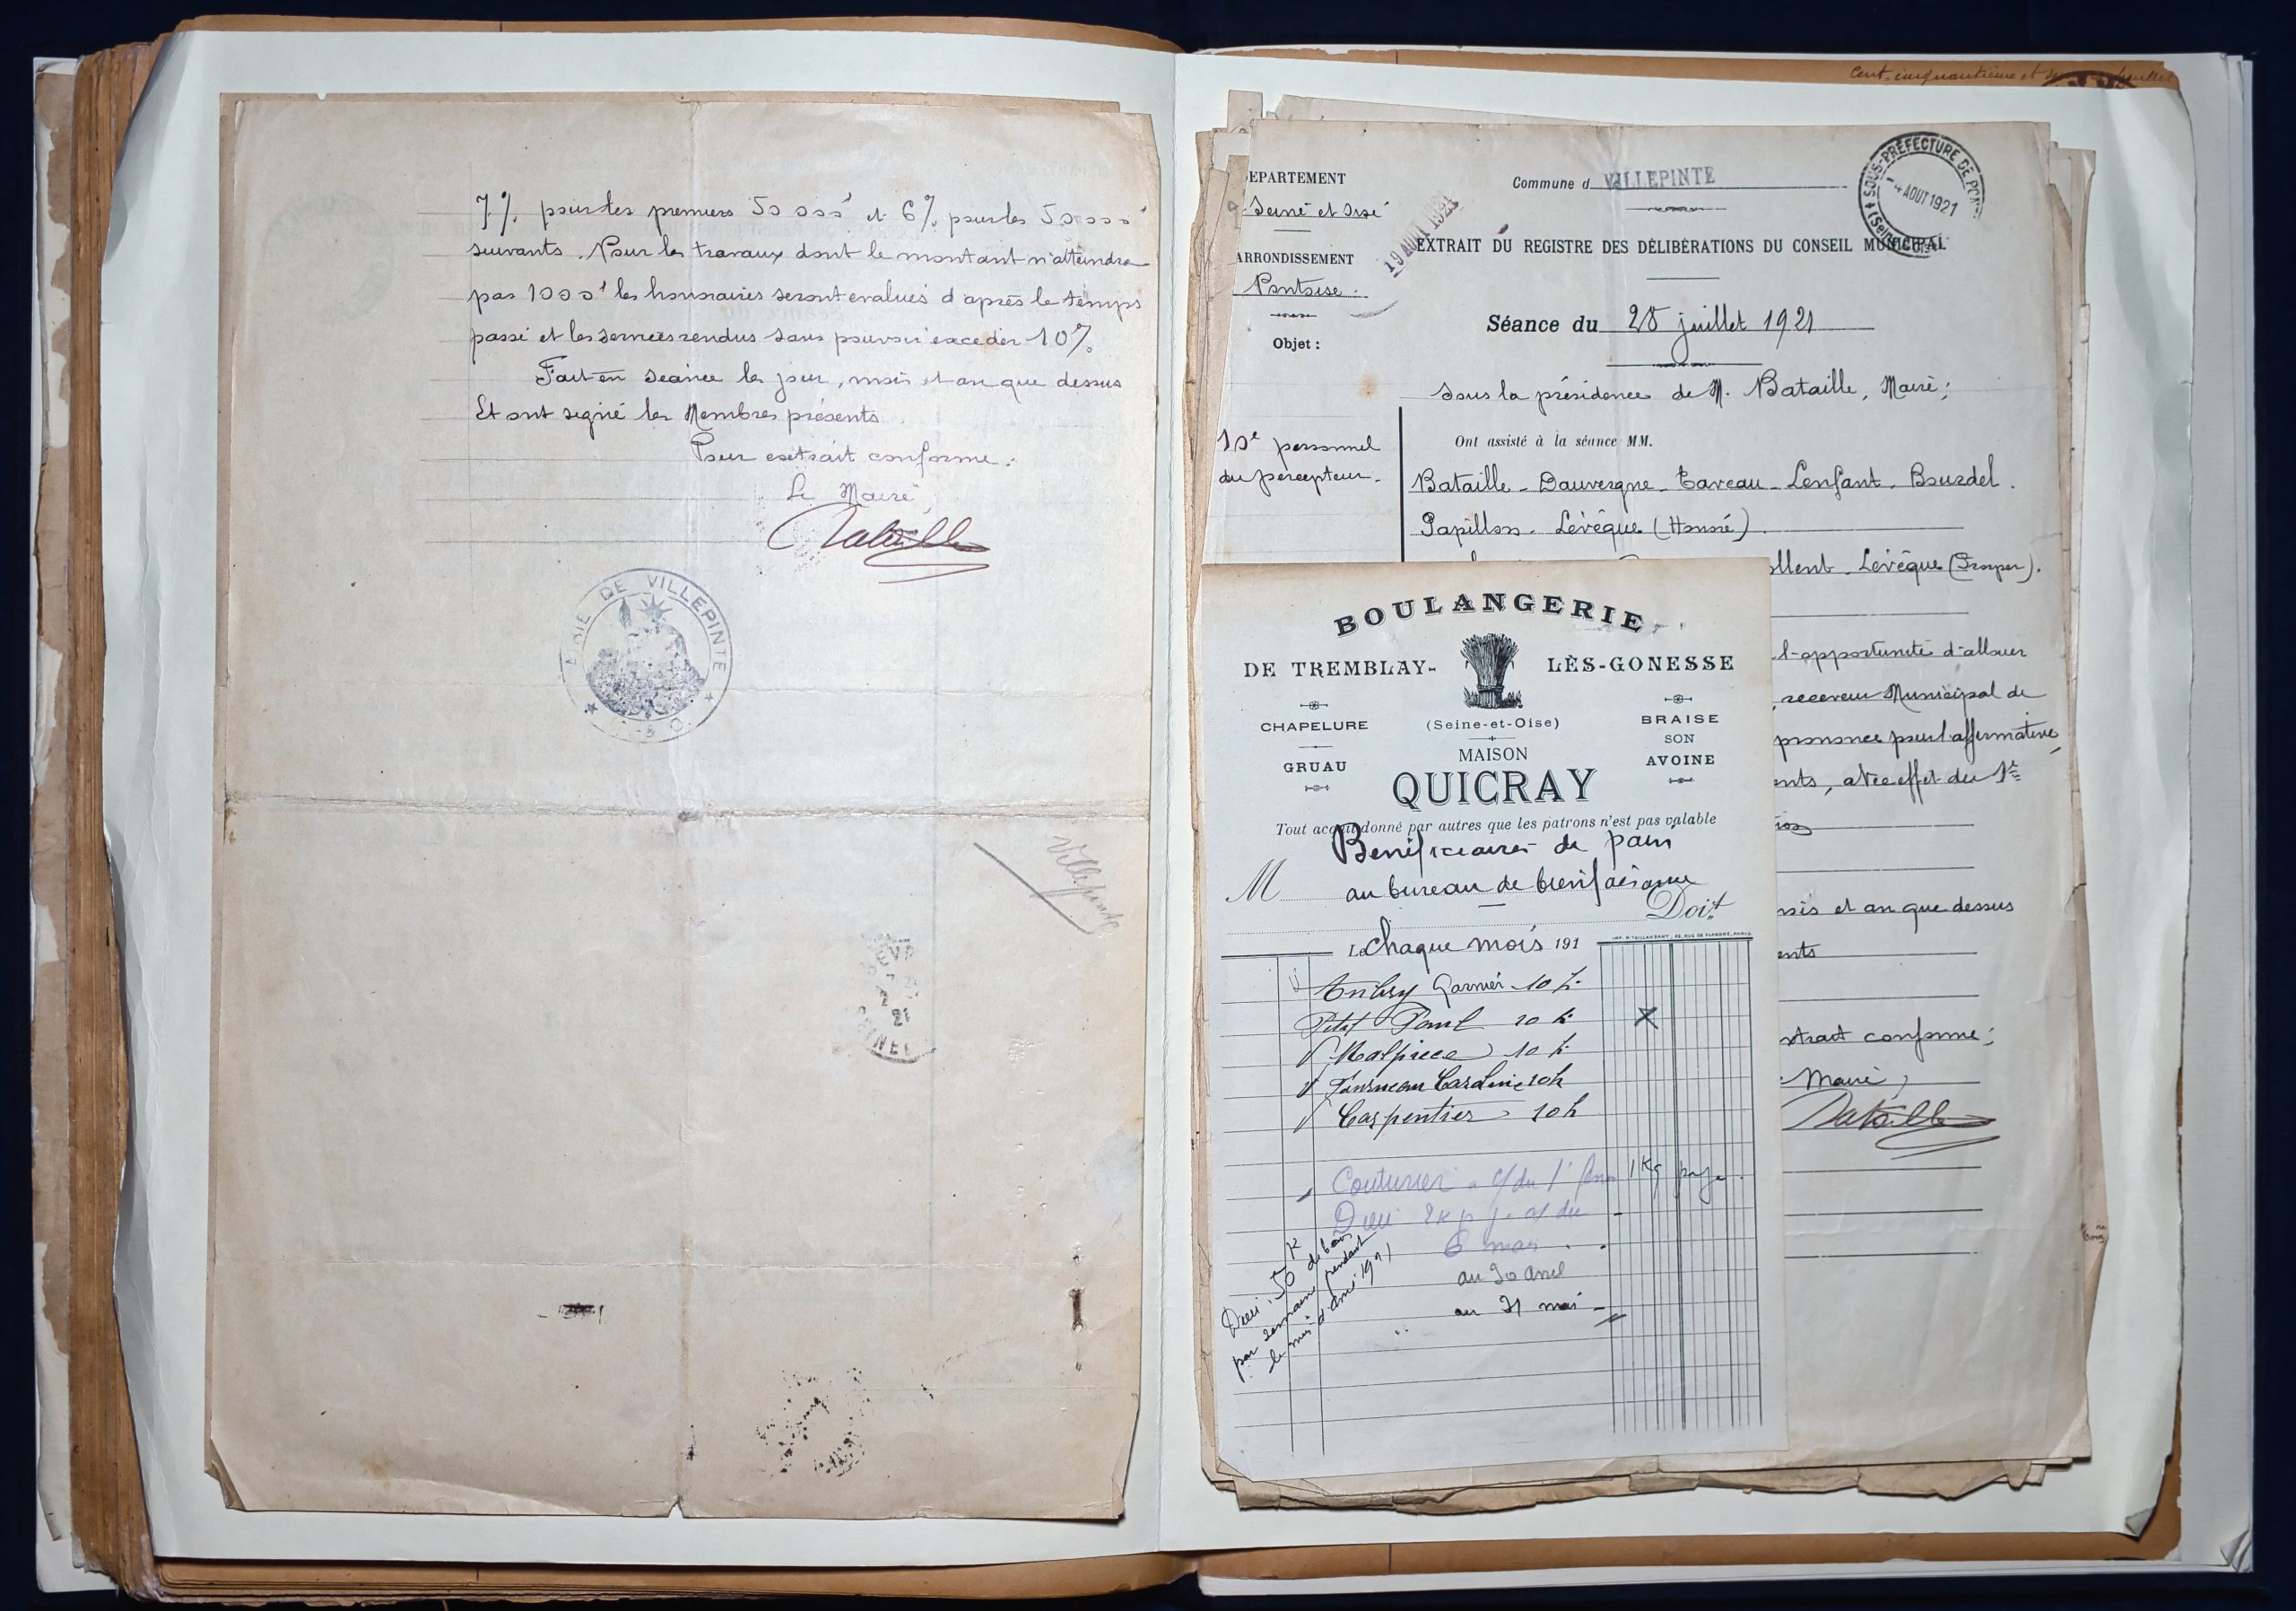 7% pour les premiers 50000f et 6% pour les 50000f
suivants. Pour les travaux dont le montant n'atteindra
pas 1000f les honoraires seront evalués d'après le temps
passé et les services rendus sans pouvoir excéder 10%
Fait en séance les jour, mois et an que dessus
Et ont signé les Membres présents
Pour extrait conforme:
Le Maire,
Bataille
MAIRIE DE VILLEPINTE
S. O.
Villepinte
21
Cent-cinquantième et feuillet
DEPARTEMENT
Seine et Oise
ARRONDISSEMENT
Pontoise.
Objet :
10e personnel
du percepteur.
19 AOUT 1921
Commune d VILLEPINTE
SOUS-PRÉFECTURE DE PONT
-4 AOUT 1921
(Seine-et-Oise)
EXTRAIT DU REGISTRE DES DÉLIBÉRATIONS DU CONSEIL MUNICIPAL
Séance du 28 juillet 1921
Sous la présidence de M. Bataille, Maire;
Ont assisté à la séance MM.
Bataille - Dauvergne - Taveau - Lenfant - Bourdel.
Papillon - Lévêque (Honoré)
ollent - Lévêque (Prosper).
l'opportunité d'allouer
, receveur Municipal de
prononce pour l'affirmative,
ents, avec effet du 1er
ois et an que dessus
ents
xtrait conforme;
Maire,
Bataille
BOULANGERIE
DE TREMBLAY- LÈS-GONESSE
CHAPELURE
GRUAU
(Seine-et-Oise)
BRAISE
SON
AVOINE
MAISON
QUICRAY
Tout acquit donné par autres que les patrons n'est pas valable
Bénéficiaires de pain
M au bureau de bienfaisance
Doit
IMP. P. TAILLARDANT, 42, RUE DE FLANDRE, PARIS
Le chaque mois 191
Garnier 10 k.
Petit Paul 10 k.
Malpiece 10 k.
Fourneau Caroline 10k
Carpentier 10k
Couturier a c/ du 1er 1 Kg par j.
Dieu 2k p j. a/ du
6 mai
au 30 avril
au 31 mai
Dieu. 50 K de bois
par semaine pendant
le mois d'avril 1921